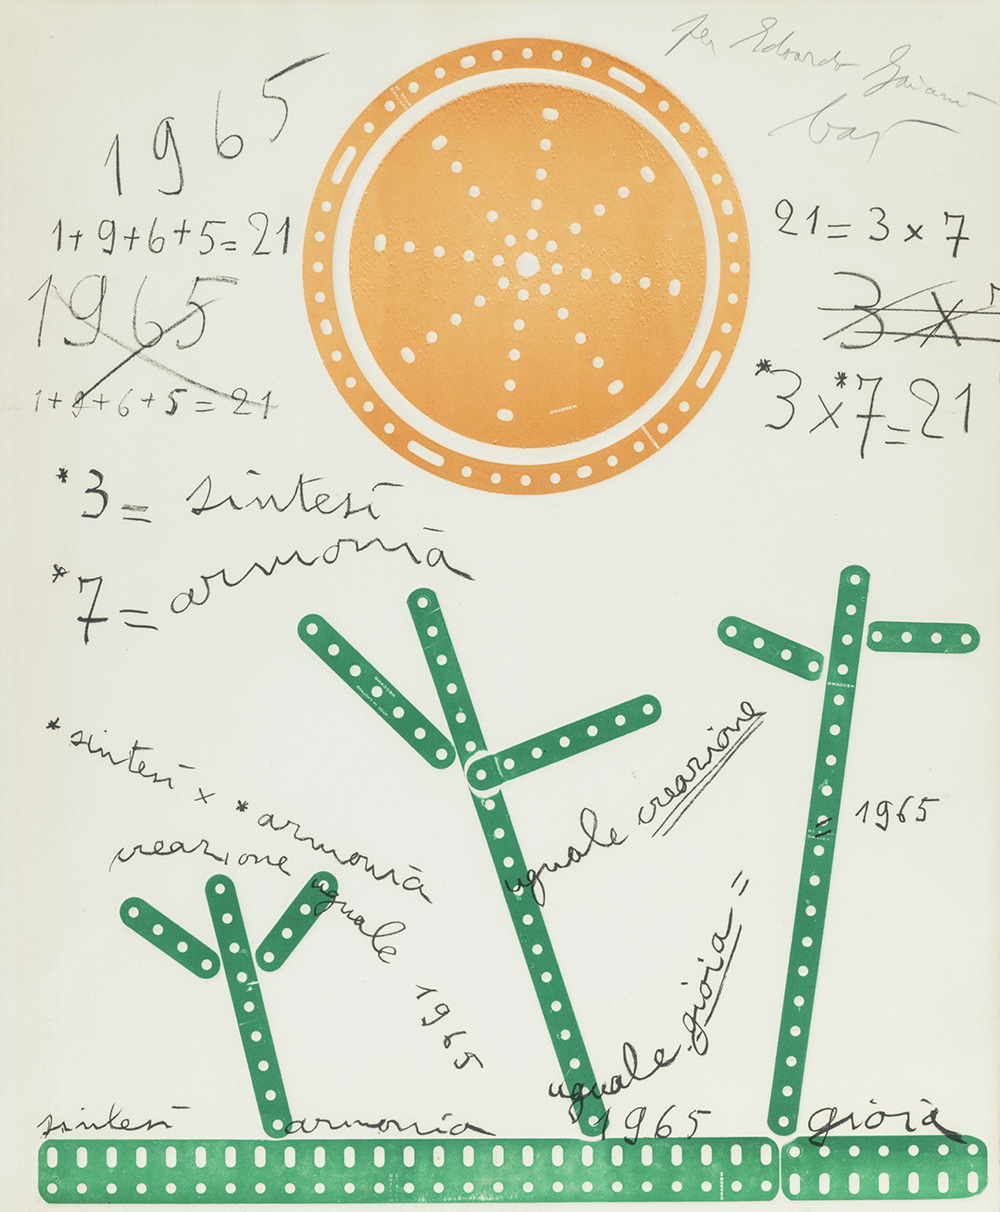 per Edoardo
baj
1965
1+9+6+5=21
1965
1+9+6+5=21
21=3×7
3×7
*3×*7=21
*3=sintesi
*7=armonia
*sintesi × *armonia
uguale creazione
= 1965
creazione uguale 1965
uguale gioia =
sintesi armonia 1965 gioia